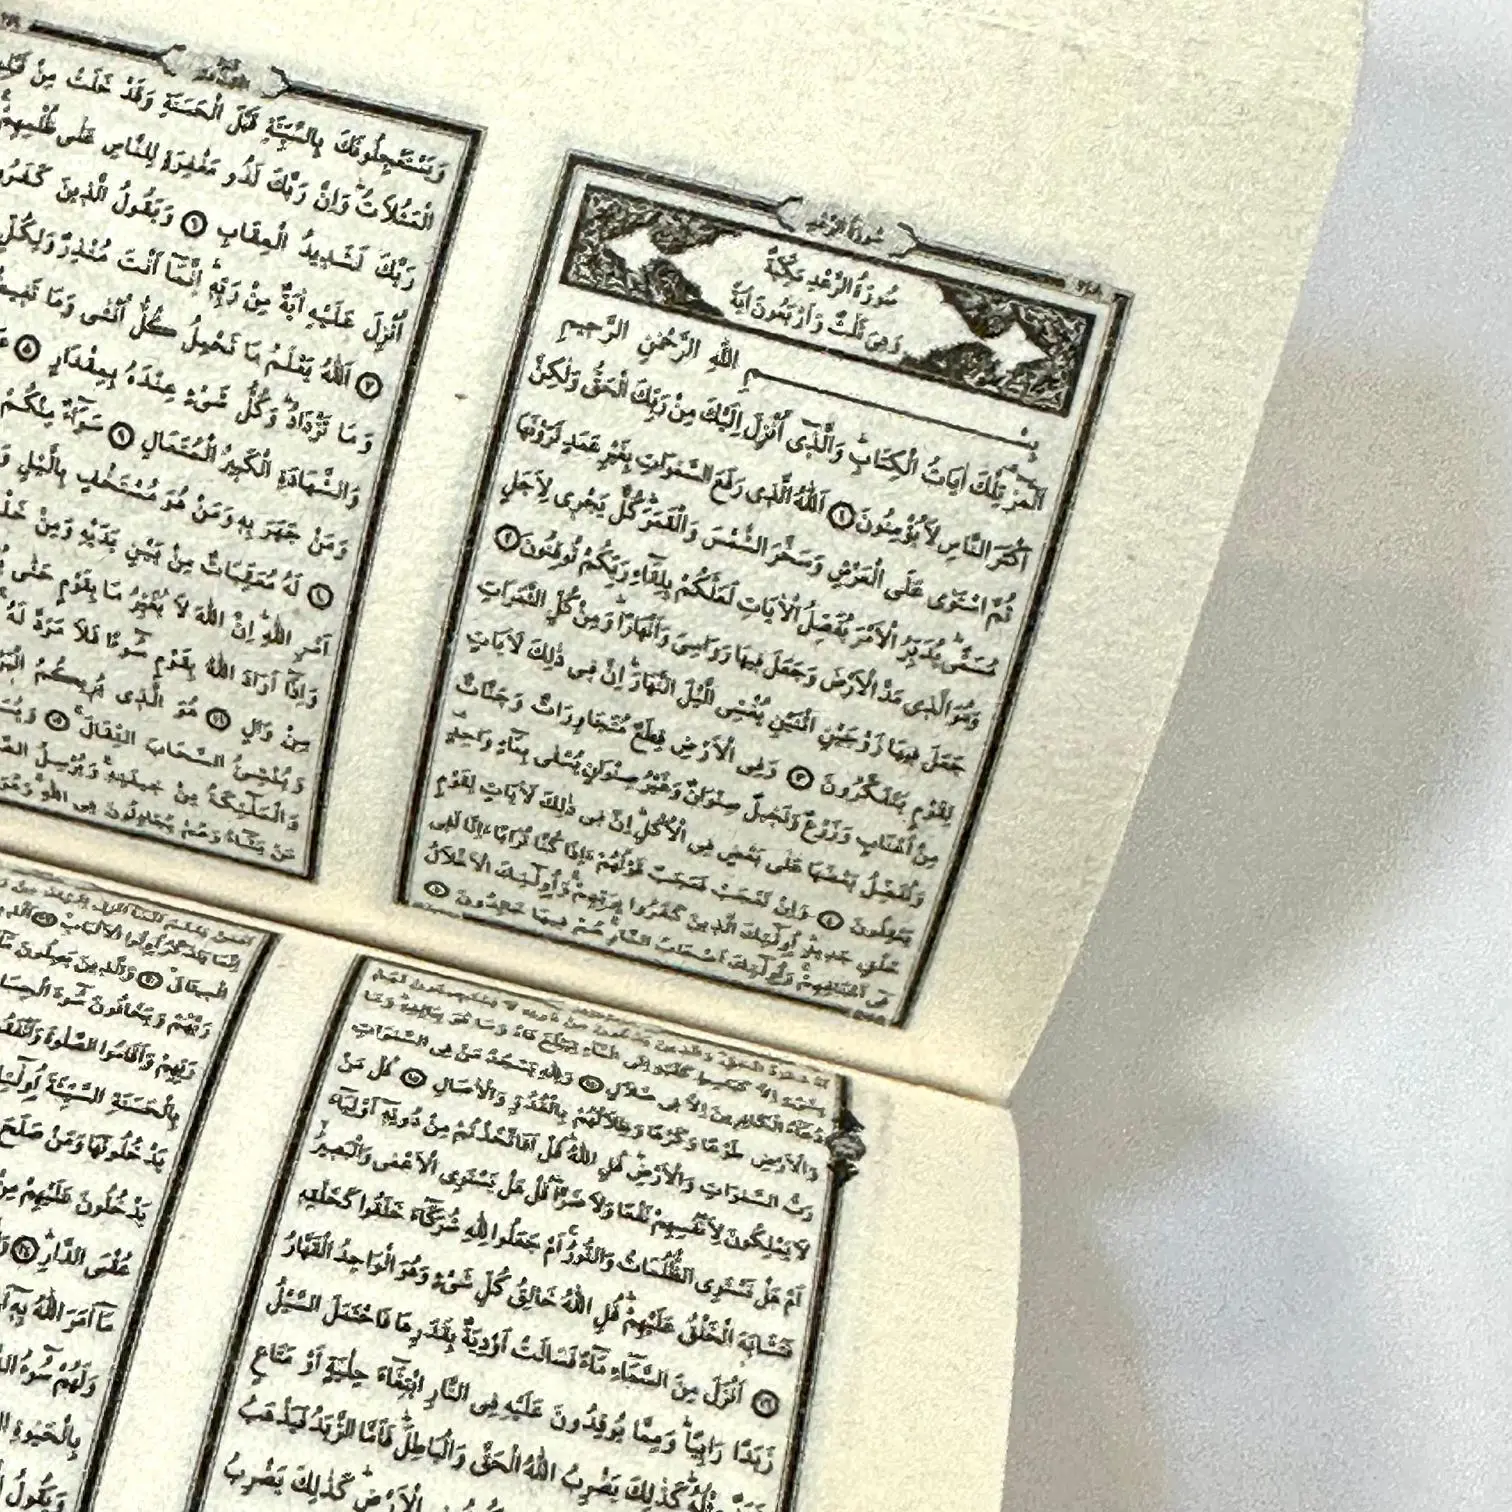 سُورَةُ الرَّعْدِ
٢٤٨
سُورَةُ الرَّعْدِ مَكِّيَّةٌ
وَهِىَ ثَلٰثٌ وَاَرْبَعُونَ اٰيَةً
بِسْمِ اللّٰهِ الرَّحْمٰنِ الرَّحِيمِ
الٓمٓرٰ تِلْكَ اٰيَاتُ الْكِتَابِۜ وَالَّذ۪ٓى اُنْزِلَ اِلَيْكَ مِنْ رَبِّكَ الْحَقُّ وَلٰكِنَّ
اَكْثَرَ النَّاسِ لَا يُؤْمِنُونَ ١ اَللّٰهُ الَّذ۪ى رَفَعَ السَّمٰوَاتِ بِغَيْرِ عَمَدٍ تَرَوْنَهَا
ثُمَّ اسْتَوٰى عَلَى الْعَرْشِ وَسَخَّرَ الشَّمْسَ وَالْقَمَرَۜ كُلٌّ يَجْر۪ى لِاَجَلٍ
مُسَمًّىۜ يُدَبِّرُ الْاَمْرَ يُفَصِّلُ الْاٰيَاتِ لَعَلَّكُمْ بِلِقَٓاءِ رَبِّكُمْ تُوقِنُونَ ٢
وَهُوَ الَّذ۪ى مَدَّ الْاَرْضَ وَجَعَلَ ف۪يهَا رَوَاسِىَ وَاَنْهَارًاۜ وَمِنْ كُلِّ الثَّمَرَاتِ
جَعَلَ ف۪يهَا زَوْجَيْنِ اثْنَيْنِ يُغْشِى الَّيْلَ النَّهَارَۜ اِنَّ ف۪ى ذٰلِكَ لَاٰيَاتٍ
لِقَوْمٍ يَتَفَكَّرُونَ ٣ وَفِى الْاَرْضِ قِطَعٌ مُتَجَاوِرَاتٌ وَجَنَّاتٌ
مِنْ اَعْنَابٍ وَزَرْعٌ وَنَخ۪يلٌ صِنْوَانٌ وَغَيْرُ صِنْوَانٍ يُسْقٰى بِمَٓاءٍ وَاحِدٍ
وَنُفَضِّلُ بَعْضَهَا عَلٰى بَعْضٍ فِى الْاُكُلِۜ اِنَّ ف۪ى ذٰلِكَ لَاٰيَاتٍ لِقَوْمٍ
يَعْقِلُونَ ٤ وَاِنْ تَعْجَبْ فَعَجَبٌ قَوْلُهُمْ ءَاِذَا كُنَّا تُرَابًا ءَاِنَّا لَف۪ى
خَلْقٍ جَد۪يدٍۜ اُو۬لٰٓئِكَ الَّذ۪ينَ كَفَرُوا بِرَبِّهِمْۚ وَاُو۬لٰٓئِكَ الْاَغْلَالُ
ف۪ٓى اَعْنَاقِهِمْۚ وَاُو۬لٰٓئِكَ اَصْحَابُ النَّارِۚ هُمْ ف۪يهَا خَالِدُونَ ٥
وَيَسْتَعْجِلُونَكَ بِالسَّيِّئَةِ قَبْلَ الْحَسَنَةِ وَقَدْ خَلَتْ مِنْ
الْمَثُلَاتُۜ وَاِنَّ رَبَّكَ لَذُو مَغْفِرَةٍ لِلنَّاسِ عَلٰى ظُلْمِهِمْۚ
رَبَّكَ لَشَد۪يدُ الْعِقَابِ ٦ وَيَقُولُ الَّذ۪ينَ كَفَرُوا
اُنْزِلَ عَلَيْهِ اٰيَةٌ مِنْ رَبِّه۪ۜ اِنَّمَٓا اَنْتَ مُنْذِرٌ وَلِكُلِّ
٧ اَللّٰهُ يَعْلَمُ مَا تَحْمِلُ كُلُّ اُنْثٰى وَمَا تَغ۪يضُ
وَمَا تَزْدَادُۜ وَكُلُّ شَىْءٍ عِنْدَهُ بِمِقْدَارٍ ٨
وَالشَّهَادَةِ الْكَب۪يرُ الْمُتَعَالِ ٩ سَوَٓاءٌ مِنْكُمْ
وَمَنْ جَهَرَ بِه۪ وَمَنْ هُوَ مُسْتَخْفٍ بِالَّيْلِ
١٠ لَهُ مُعَقِّبَاتٌ مِنْ بَيْنِ يَدَيْهِ وَمِنْ
اَمْرِ اللّٰهِۜ اِنَّ اللّٰهَ لَا يُغَيِّرُ مَا بِقَوْمٍ حَتّٰى
وَاِذَٓا اَرَادَ اللّٰهُ بِقَوْمٍ سُٓوءًا فَلَا مَرَدَّ لَهُ
مِنْ وَالٍ ١١ هُوَ الَّذ۪ى يُر۪يكُمُ الْبَرْقَ
وَيُنْشِئُ السَّحَابَ الثِّقَالَۚ ١٢
وَالْمَلٰٓئِكَةُ مِنْ خ۪يفَتِه۪ۚ وَيُرْسِلُ
مَنْ يَشَٓاءُ وَهُمْ يُجَادِلُونَ فِى اللّٰهِۚ وَهُوَ
دُعَٓاءُ الْكَافِر۪ينَ اِلَّا ف۪ى ضَلَالٍ ١٤ وَلِلّٰهِ يَسْجُدُ مَنْ فِى السَّمٰوَاتِ
وَالْاَرْضِ طَوْعًا وَكَرْهًا وَظِلَالُهُمْ بِالْغُدُوِّ وَالْاٰصَالِ ١٥ قُلْ مَنْ
رَبُّ السَّمٰوَاتِ وَالْاَرْضِۜ قُلِ اللّٰهُۜ قُلْ اَفَاتَّخَذْتُمْ مِنْ دُونِه۪ٓ اَوْلِيَٓاءَ
لَا يَمْلِكُونَ لِاَنْفُسِهِمْ نَفْعًا وَلَا ضَرًّاۜ قُلْ هَلْ يَسْتَوِى الْاَعْمٰى وَالْبَص۪يرُ
اَمْ هَلْ تَسْتَوِى الظُّلُمَاتُ وَالنُّورُۚ اَمْ جَعَلُوا لِلّٰهِ شُرَكَٓاءَ خَلَقُوا كَخَلْقِه۪
فَتَشَابَهَ الْخَلْقُ عَلَيْهِمْۜ قُلِ اللّٰهُ خَالِقُ كُلِّ شَىْءٍ وَهُوَ الْوَاحِدُ الْقَهَّارُ
١٦ اَنْزَلَ مِنَ السَّمَٓاءِ مَٓاءً فَسَالَتْ اَوْدِيَةٌ بِقَدَرِهَا فَاحْتَمَلَ السَّيْلُ
زَبَدًا رَابِيًاۜ وَمِمَّا يُوقِدُونَ عَلَيْهِ فِى النَّارِ ابْتِغَٓاءَ حِلْيَةٍ اَوْ مَتَاعٍ
زَبَدٌ مِثْلُهُۜ كَذٰلِكَ يَضْرِبُ اللّٰهُ الْحَقَّ وَالْبَاطِلَۜ فَاَمَّا الزَّبَدُ فَيَذْهَبُ
الْاَرْضِۜ كَذٰلِكَ يَضْرِبُ
رَبَّهُمْ وَيَخَافُونَ سُٓوءَ
رَبِّهِمْ وَاَقَامُوا الصَّلٰوةَ
بِالْحَسَنَةِ السَّيِّئَةَ
يَدْخُلُونَهَا وَمَنْ صَلَحَ
يَدْخُلُونَ عَلَيْهِمْ مِنْ
عُقْبَى الدَّارِۜ
مَٓا اَمَرَ اللّٰهُ بِه۪ٓ
وَلَهُمْ سُٓوءُ
بِالْحَيٰوةِ
وَيَقُولُ